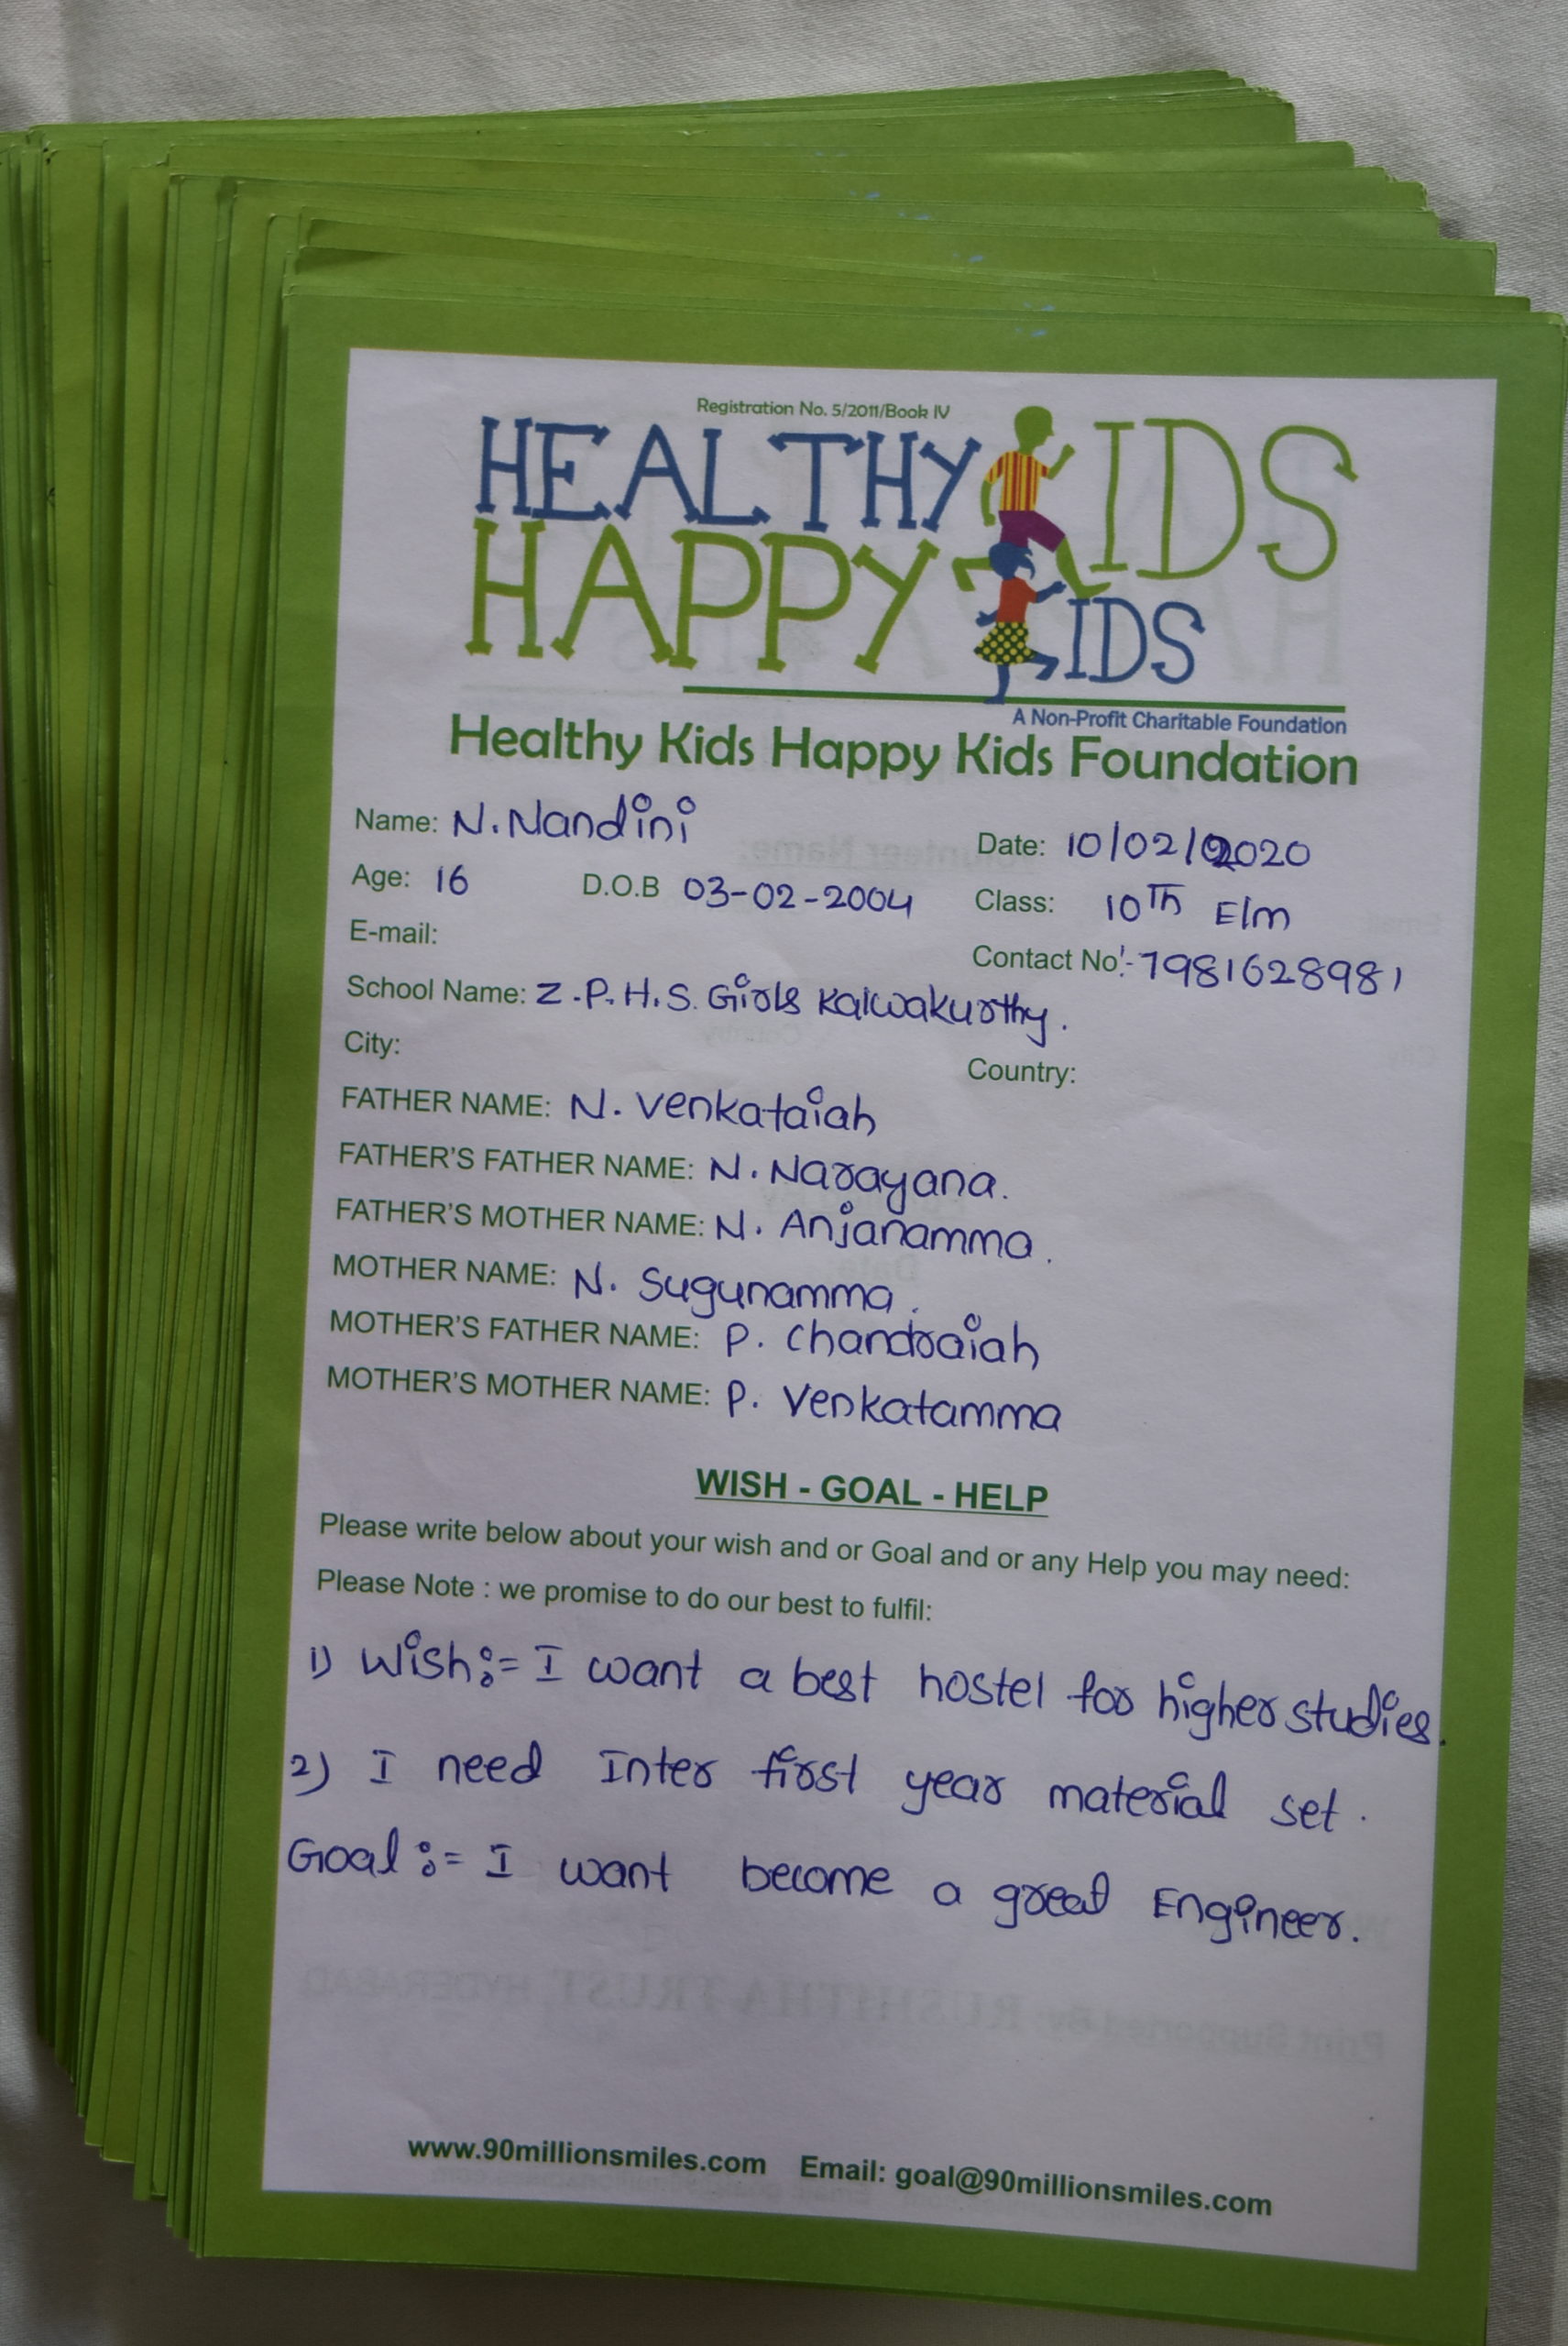 Registration No. 5/2011/Book IV
HEALTHY KIDS
HAPPY KIDS
A Non-Profit Charitable Foundation
Healthy Kids Happy Kids Foundation
Name: N. Nandini Date: 10/02/2020
Age: 16 D.O.B 03-02-2004 Class: 10Th E/m
E-mail: Contact No:- 7981628981
School Name: Z.P.H.S. Girls Kalwakurthy.
City: Country:
FATHER NAME: N. Venkataiah
FATHER'S FATHER NAME: N. Narayana.
FATHER'S MOTHER NAME: N. Anjanamma.
MOTHER NAME: N. Sugunamma.
MOTHER'S FATHER NAME: P. Chandraiah
MOTHER'S MOTHER NAME: P. Venkatamma
WISH - GOAL - HELP
Please write below about your wish and or Goal and or any Help you may need:
Please Note : we promise to do our best to fulfil:
1) Wish:= I want a best hostel for higher studies.
2) I need Inter first year material set.
Goal:= I want become a great Engineer.
Print Supported By RUSHITHA TRUST, HYDERABAD
www.90millionsmiles.com Email: goal@90millionsmiles.com